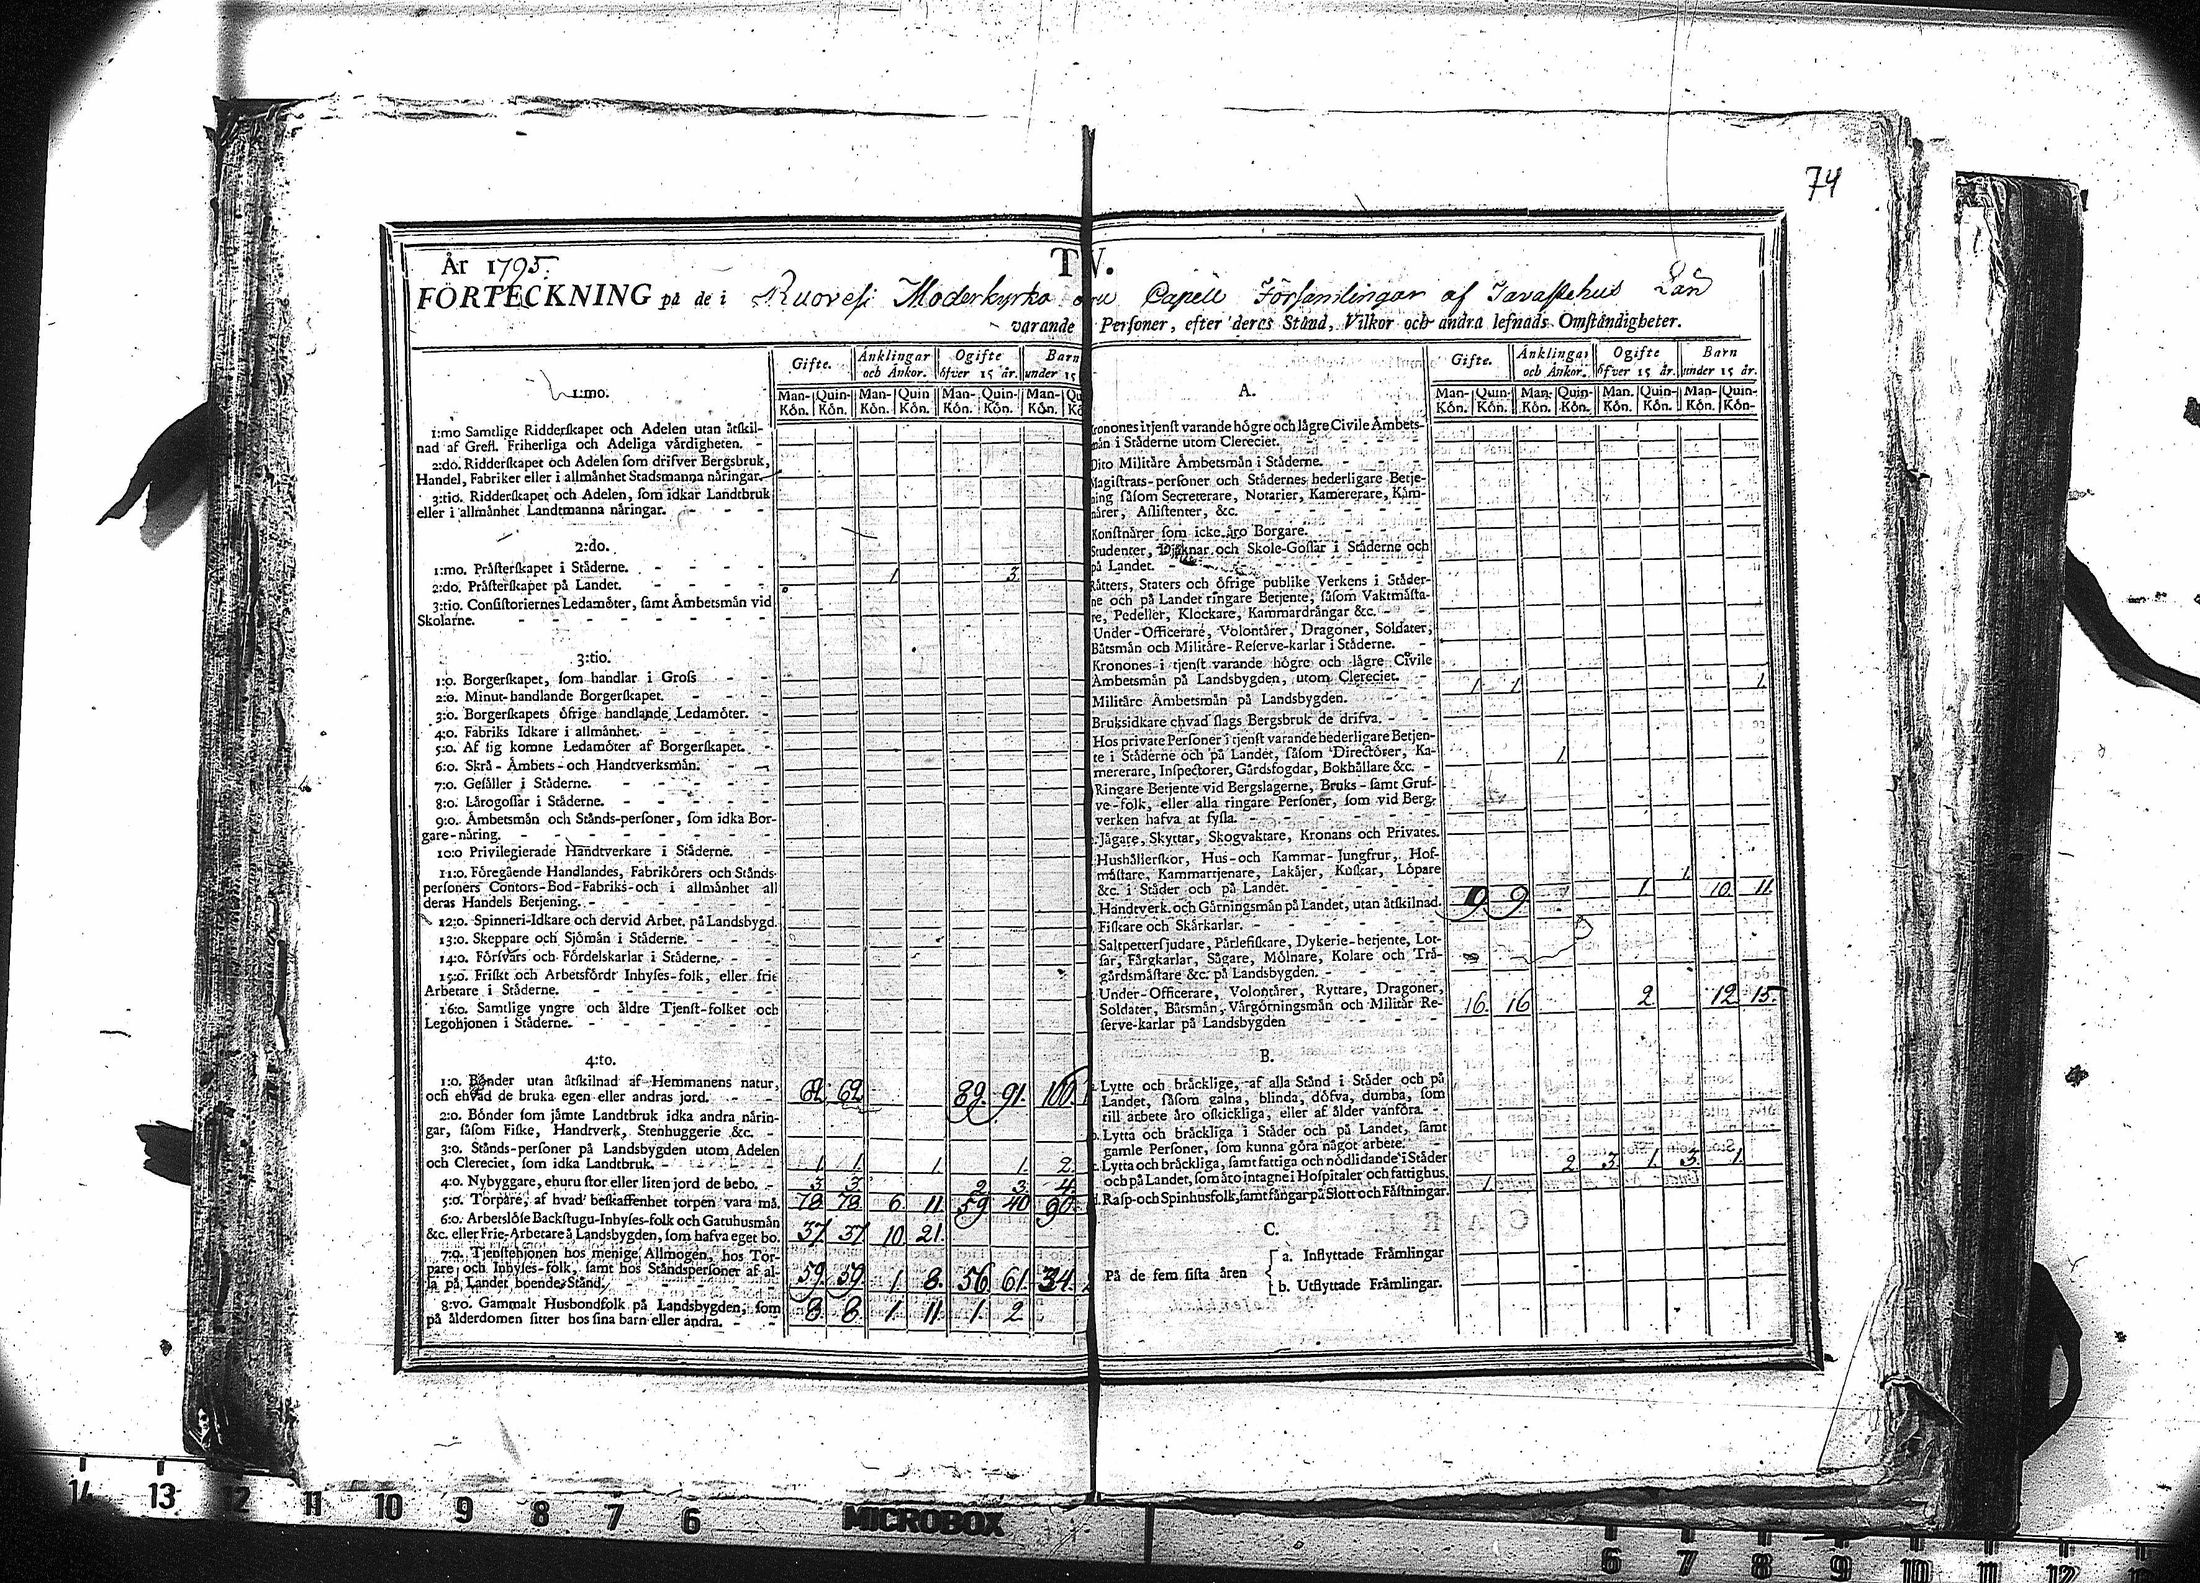 74
År 1795. TV.
FÖRTECKNING på de i Ruovesi Moderkyrko och Capell Församlingar af Tavastehus Län
varande Perſoner, efter deras Stånd, Vilkor och andra lefnads Omſtåndigheter.
Gifte. Ånklingar och Ånkor. Ogifte öfver 15 år. Barn under 15
Man-Kön. Quin-Kön. Man-Kön. Quin Kön. Man-Kön. Quin-Kön. Man-Kön.
1:mo.
1:mo Samtlige Ridderſkapet och Adelen utan åtſkil-
nad af Grefl. Friherliga och Adeliga vårdigheten. -
2:do. Ridderſkapet och Adelen ſom drifver Bergsbruk,
Handel, Fabriker eller i allmånhet Stadsmanna nåringar.
3:tio. Ridderſkapet och Adelen, ſom idkar Landtbruk
eller i allmånhet Landtmanna nåringar. - - -
2:do.
1:mo. Pråſterſkapet i Ståderne. - - - - 1 3.
2:do. Pråſterſkapet på Landet. - - - -
3:tio. Conſiſtoriernes Ledamöter, ſamt Åmbetsmån vid
Skolarne. - - - - - - -
3:tio.
1:o. Borgerſkapet, ſom handlar i Groſs - -
2:o. Minut-handlande Borgerſkapet. - - -
3:o. Borgerſkapets öfrige handlande Ledamöter. -
4:o. Fabriks Idkare i allmånhet. - - - -
5:o. Af ſig komne Ledamöter af Borgerſkapet. -
6:o. Skrå - Åmbets - och Handtverksmån. - -
7:o. Geſåller i Ståderne. - - - - -
8:o. Lårogoſſar i Ståderne. - - - - -
9:o. Åmbetsmån och Stånds-perſoner, ſom idka Bor-
gare-nåring. - - - - - - -
10:o Privilegierade Handtverkare i Ståderne. -
11:o. Föregående Handlandes, Fabrikörers och Stånds-
perſoners Contors-Bod-Fabriks-och i allmånhet all
deras Handels Betjening. - - - - -
12:o. Spinneri-Idkare och dervid Arbet. på Landsbygd.
13:o. Skeppare och Sjömån i Ståderne. - - -
14:o. Förſvars och Fördelskarlar i Ståderne. - -
15:o. Friſkt och Arbetsfördt Inhyſes-folk, eller frie
Arbetare i Ståderne. - - - - - -
16:o. Samtlige yngre och åldre Tjenſt-folket och
Legohjonen i Ståderne. - - - - - -
4:to.
1:o. Bönder utan åtſkilnad af Hemmanens natur,
och ehvad de bruka egen eller andras jord. - - 62 62 89. 91. 100.
2:o. Bönder ſom jåmte Landtbruk idka andra nårin-
gar, ſåſom Fiſke, Handtverk, Stenhuggerie &c. -
3:o. Stånds-perſoner på Landsbygden utom Adelen
och Clereciet, ſom idka Landtbruk. - - - 1. 1. 1. 1. 2.
4:o. Nybyggare, ehuru ſtor eller liten jord de bebo. - 3 3 2. 3. 4.
5:o. Torpare, af hvad beſkaffenhet torpen vara må. 78 78 6 11 59 40 90.
6:o. Arbetslöſe Backſtugu-Inhyſes-folk och Gatuhusmån
&c. eller Frie-Arbetare å Landsbygden, ſom hafva eget bo. 37 37 10 21.
7:o. Tjenſtehjonen hos menige Allmogen, hos Tor-
pare och Inhyſes-folk, ſamt hos Ståndsperſoner af al-
la på Landet boende Stånd. - - - - 59. 59. 1 8. 56 61. 34.
8:vo. Gammalt Husbondfolk på Landsbygden, ſom
på ålderdomen ſitter hos ſina barn eller andra. - - 8. 8. 1. 11. 1. 2
Gifte. Ånklingar och Ånkor. Ogifte öfver 15 år. Barn under 15 år.
Man-Kön. Quin-Kön. Man-Kön. Quin-Kön. Man. Kön. Quin-Kön. Man-Kön. Quin-Kön-
A.
Kronones i tjenſt varande högre och lågre Civile Åmbets-
mån i Ståderne utom Clereciet. - - - -
Dito Militåre Åmbetsmån i Ståderne. - - -
Magiſtrats-perſoner och Stådernes hederligare Betje-
ning ſåſom Secreterare, Notarier, Kamererare, Kåm-
nårer, Aſſiſtenter, &c. - - - - -
Konſtnårer ſom icke åro Borgare. - - - -
Studenter, Djeknar och Skole-Goſſar i Ståderne och
på Landet. - - - - -
Råtters, Staters och öfrige publike Verkens i Ståder-
ne och på Landet ringare Betjente, ſåſom Vaktmåſta-
re, Pedeller, Klockare, Kammardrångar &c. - -
Under-Officerare, Volontårer, Dragoner, Soldater,
Båtsmån och Militåre-Reſerve-karlar i Ståderne. -
Kronones i tjenſt varande högre och lågre Civile
Åmbetsmån på Landsbygden, utom Clereciet. - 1. 1. 1.
Militåre Åmbetsmån på Landsbygden. - - -
Bruksidkare ehvad ſlags Bergsbruk de drifva. - -
Hos private Perſoner i tjenſt varande hederligare Betjen-
te i Ståderne och på Landet, ſåſom Directörer, Ka- 1.
mererare, Inſpectorer, Gårdsfogdar, Bokhållare &c. -
Ringare Betjente vid Bergslagerne, Bruks-ſamt Gruf-
ve-folk, eller alla ringare Perſoner, ſom vid Berg-
verken hafva at ſyſla. - - - - - -
Jågare, Skyttar, Skogvaktare, Kronans och Privates.
Hushållerſkor, Hus-och Kammar-Jungfrur, Hof-
måſtare, Kammartjenare, Lakåjer, Kuſkar, Löpare 1.
&c. i Ståder och på Landet. - - - -
Handtverk. och Gårningsmån på Landet, utan åtſkilnad. 9 9 1 1. 10. 11.
Fiſkare och Skårkarlar. - - - - -
Saltpetterſjudare, Pårlefiſkare, Dykerie-betjente, Lot-
ſar, Fårgkarlar, Sågare, Mölnare, Kolare och Trå-
gårdsmåſtare &c. på Landsbygden. - - - -
Under-Officerare, Volontårer, Ryttare, Dragoner,
Soldater, Båtsmån, Vårgörningsmån och Militår Re- 16. 16 2. 12 15.
ſerve-karlar på Landsbygden - - - -
B.
Lytte och bråcklige, af alla Stånd i Ståder och på
Landet, ſåſom galna, blinda, döfva, dumba, ſom
till arbete åro oſkickliga, eller af ålder vanföra. -
Lytta och bråckliga i Ståder och på Landet, ſamt
gamle Perſoner, ſom kunna göra något arbete. -
Lytta och bråckliga, ſamt fattiga och nödlidande i Ståder
och på Landet, ſom åro intagne i Hoſpitaler och fattighus. 2. 3. 1. 3. 1.
d. Raſp-och Spinhusfolk, ſamt fångar på Slott och Fåſtningar. 1.
C.
På de fem ſiſta åren
a. Inflyttade Fråmlingar
b. Utflyttade Fråmlingar.
14 13 12 11 10 9 8 7 6 MICROBOX 6 7 8 9 10 11 12